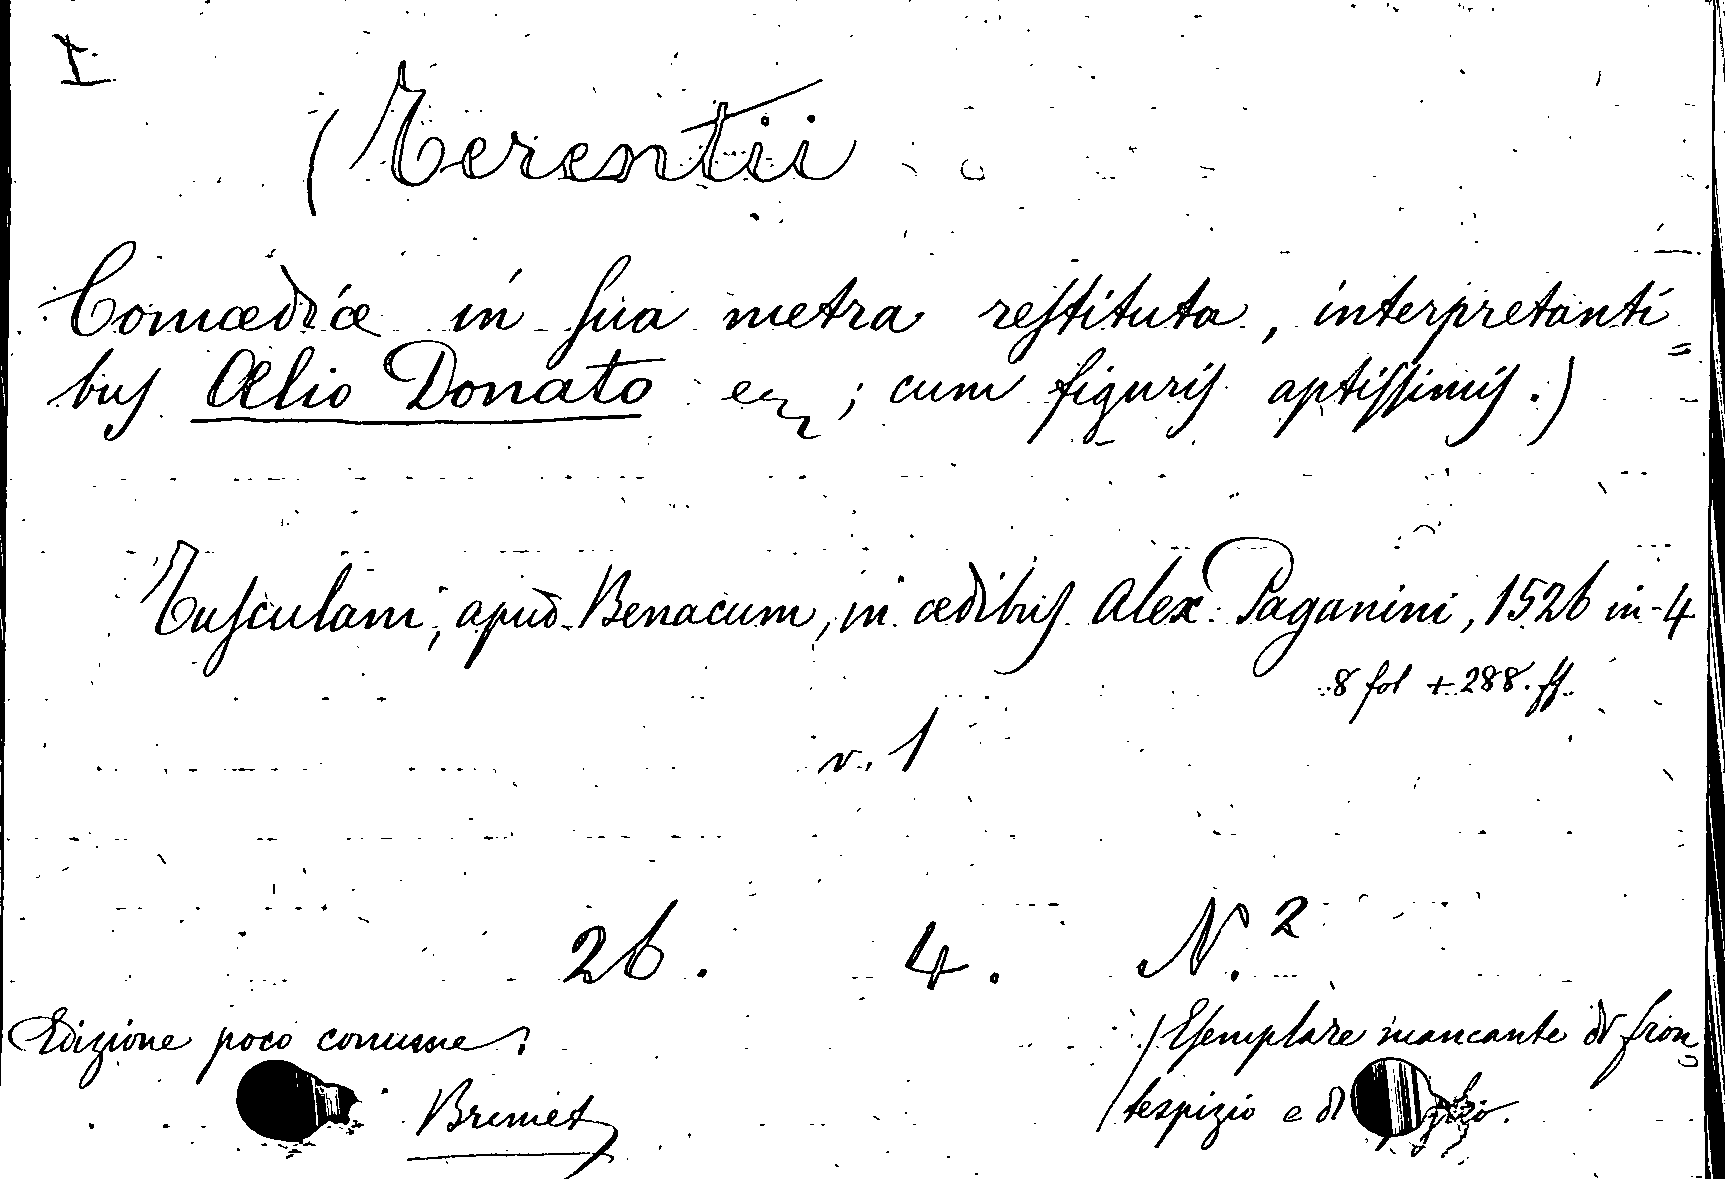 I
(Terentii
Comœdiæ in sua metra restituta, interpretanti=
bus Ælio Donato ; cum figuris aptissimis.)
Tusculani, apud Benacum, in ædibus Alex. Paganini, 1526 in-4
8 fol + 288. ff.
v. 1
26. 4. N. 2
Edizione poco comune.
(Esemplare mancante di fron
Brunet
(tespizio e di